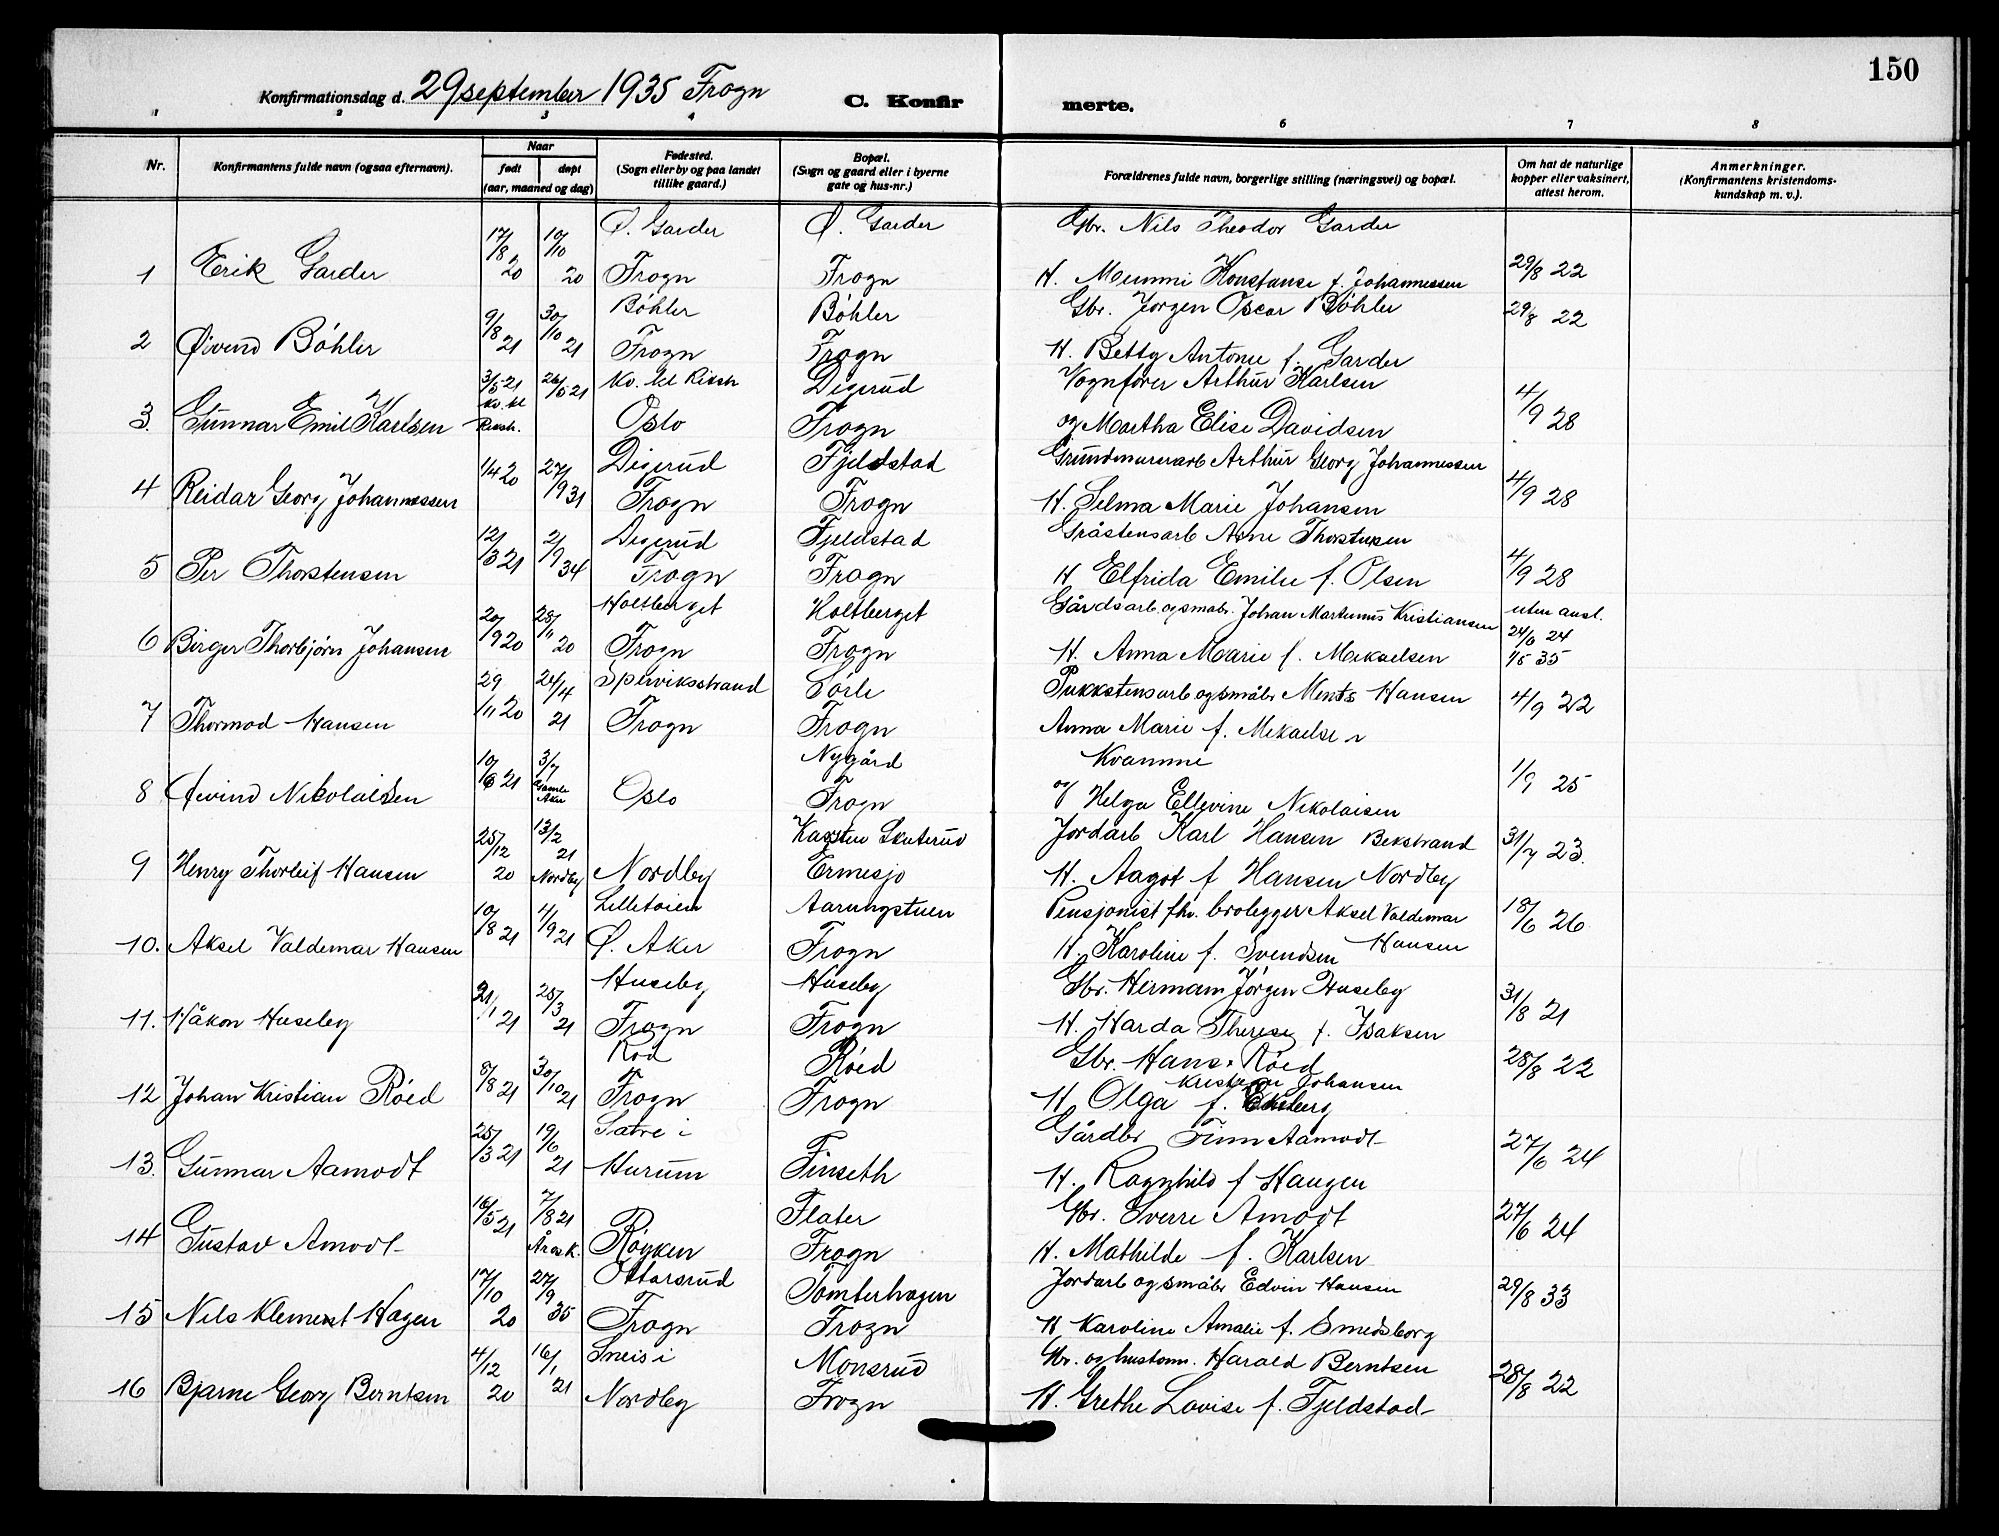 150
Konfirmationsdag d. 29 september 1935 Frogn C. Konfirmerte.
1 2 3 4 6 7 8
Nr. Konfirmantens fulde navn (ogsaa efternavn). Naar født døpt (aar, maaned og dag) Fødested. (Sogn eller by og paa landet tillike gaard.) Bopæl. (Sogn og gaard eller i byerne gate og hus-nr.) Forældrenes fulde navn, borgerlige stilling (næringsvei) og bopæl. Om hat de naturlige kopper eller vaksinert, attest herom. Anmerkninger. (Konfirmantens kristendoms-kundskap m. v.).
17/8 10/10 Ø. Garder Ø. Garder Gbr. Nils Theodor Garder
1 Erik Garder 20 20 Frogn Frogn H. Konstanse f. Johannessen 29/8 22
9/8 21 30/10 21 Bøhler Bøhler Gbr. Jørgen Oscar Bøhler 29/8 22
2 Øivind Bøhler Frogn Frogn H. Betty Antonie f. Garder
3/5 21 Kv. kl Riksh. 26/5 21 Kv. kl Riksh Digerud Vognfører Arthur Karlsen
3. Gunnar Emil Karlsen Oslo Frogn og Martha Elise Davidsen 4/9 28
1/4 20 27/1 Digerud Fjeldstad Grundmurerarb Arthur Georg Johannessen
4 Reidar Georg Johannessen 1931 Frogn Frogn H. Selma Marie Johansen 4/9 28
12/3 21 2/9 34 Digerud Fjeldstad Gråstensarb Arne Thorstensen
5 Per Thorstensen Frogn Frogn H Elfrida Emilie f. Olsen 4/9 28
20/9 20 28/11 20 Holtberget Holtberget Gårdsarb. og småbr. Johan Martinius Kristiansen uten ansl. 24/6 24
6 Birger Thorbjørn Johansen Frogn Frogn H. Anna Marie f. Mikaelsen 1/5 35
29/11 20 24/4 21 Spirviksstrand Sørli Pukkstensarb og småbr Ments Hansen 4/9 22
7 Thormod Hansen Frogn Frogn Anna Marie f. Mikaelsen
10/6 21 3/7 Gamle Aker Nygård Kvamme
8 Øivind Nikolaisen Oslo Frogn og Helga Ellevine Nikolaisen 1/9 25
25/12 13/2 21 Karsten Skuterud Jordarb Karl Hansen Bekstrand 31/7 23.
9 Henry Thorleif Hansen 20 Nordby Nordby Ermesjø H. Aagot f Hansen Nordby
10/8 21 11/9 21 Lilletøien Aarungstuen Pensjonist fhv. brolegger Aksel Valdemar Hansen 18/6 26
10. Aksel Valdemar Hansen Ø. Aker Frogn H. Karoline f. Svendsen
21/1 21 28/3 21 Huseby Huseby Gbr. Hermann Jørgen Huseby
11. Håkon Huseby Frogn Frogn H. Harda Therese f. Isaksen 31/8 21
8/8 21 30/10 21 Rød Røed Gbr. Hans Røed 28/8 22
Kristian Johansen
12 Johan Kristian Røed Frogn Frogn H Olga f. Ekeberg
25/3 21 19/6 21 Sætre i Gårdbr Finn Aamodt
13. Gunnar Aamodt Hurum Finseth H. Ragnhild f Haugen 27/6 24
16/5 21 7/8 21 Flater Gbr. Sverre Amodt
14 Gustav Amodt Åros k. Røyken Frogn H. Mathilde f. Karlsen 27/6 24
17/10 27/9 Ottarsrud Tomterhagen Jordarb og småbr Edvin Hansen
15 Nils Klement Hagen 20 35 Frogn Frogn H Karoline Amalie f. Smedsborg 29/8 33
4/12 16/1 Sneis i Monsrud Gbr. og hustom. Harald Berntsen
16 Bjarne Georg Berntsen 20 21 Nordby Frogn H. Grethe Lovise f. Fjeldstad 28/8 22